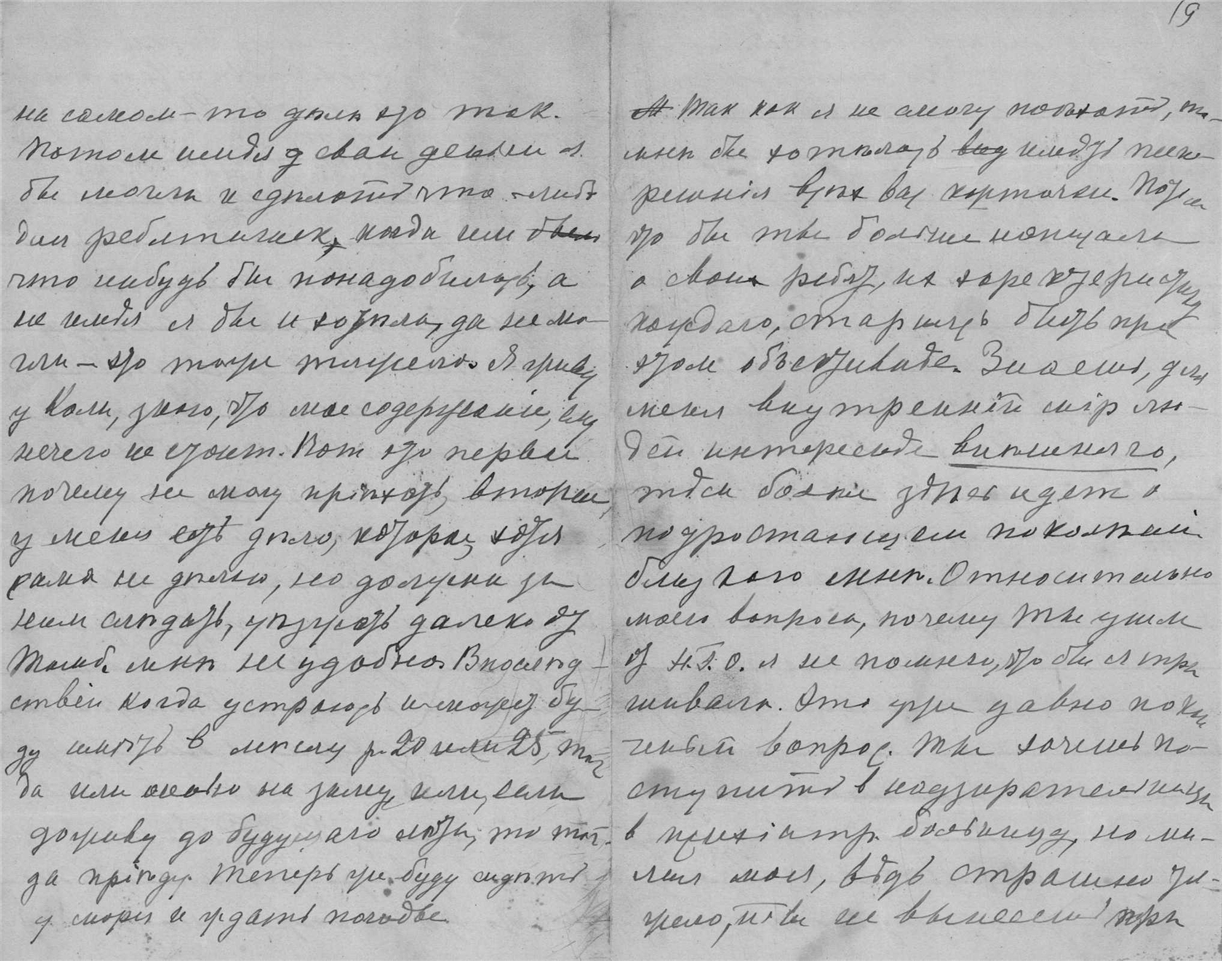 19
на самом-то дѣлѣ это так.
Потом имѣя свои деньги я
бы могла и сдѣлать что-либо
для ребятишек, когда им
что нибудь бы понадобилось, а
не имѣя я бы и хотѣла, да не мо-
гла – это тоже тяжело. Я живу
у Коли, знаю, что мое содержаніе ему
нечего не стоит. Вот это первое
почему не могу пріѣхать, второе,
у меня есть дѣло, которое, хотя
сама не дѣлаю, но должна за
ним слѣдить, уѣзжать далеко от
Тамб. мнѣ не удобно. Впослѣд-
ствіи когда устроюсь и может бу-
ду имѣть в месяц р. 20 или 25, тог
да или на зиму, или, если
доживу до будущаго лѣта, то тог-
да пріѣду. Теперь уж буду сидѣть
у моря и ждать погоды
Так как я не могу поѣхать, то
мнѣ бы хотѣлось имѣть
всѣх вас карточки. Потом
что бы ты больше написала
о своих ребят, их характеристику
каждаго, стараясь быть при
этом объективнѣе. Знаешь, для
меня внутренній мір лю-
дей интереснѣе внѣшняго,
тѣм болѣе здѣсь идет о
подростающем поколѣніи
близкаго мнѣ. Относительно
моего вопроса, почему ты ушла
от я не помню, что бы я спра
шивала. Это уже давно
вопрос. Ты хочешь по-
ступить в надзирательницы
в психіатр. больницу, но ми-
лая моя, вѣдь страшно тя-
жело, ты не вынесешь при